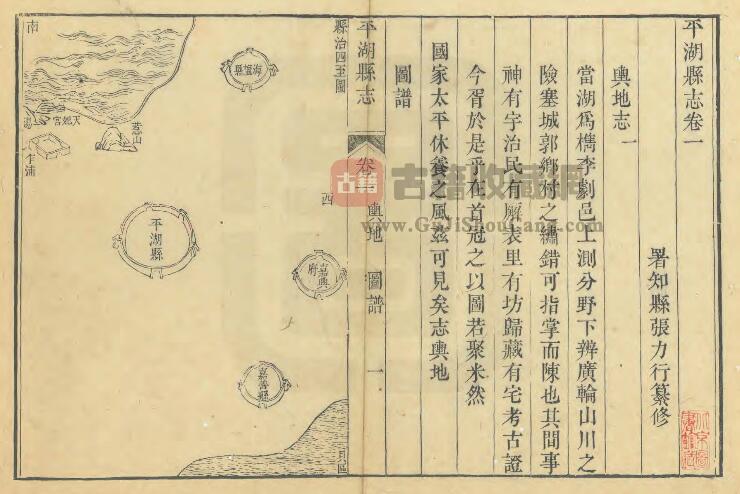 平湖縣志卷一
署知縣張力行纂修
輿地志一
當湖爲檇李劇邑上測分野下辨廣輪山川之
險塞城郭鄉村之繡錯可指掌而陳也其間事
神有宇治民有廨表里有坊歸藏有宅考古證
今胥於是乎在首冠之以圖若聚米然
國家太平休養之風茲可見矣志輿地
圖譜
平湖縣志
卷一
輿地
圖譜
一
縣治四至圖
西
南
海鹽縣
嘉興府
嘉善縣
平湖縣
天妃宮
乍浦
古籍
古籍收藏網
www.GuJiShouCang.com